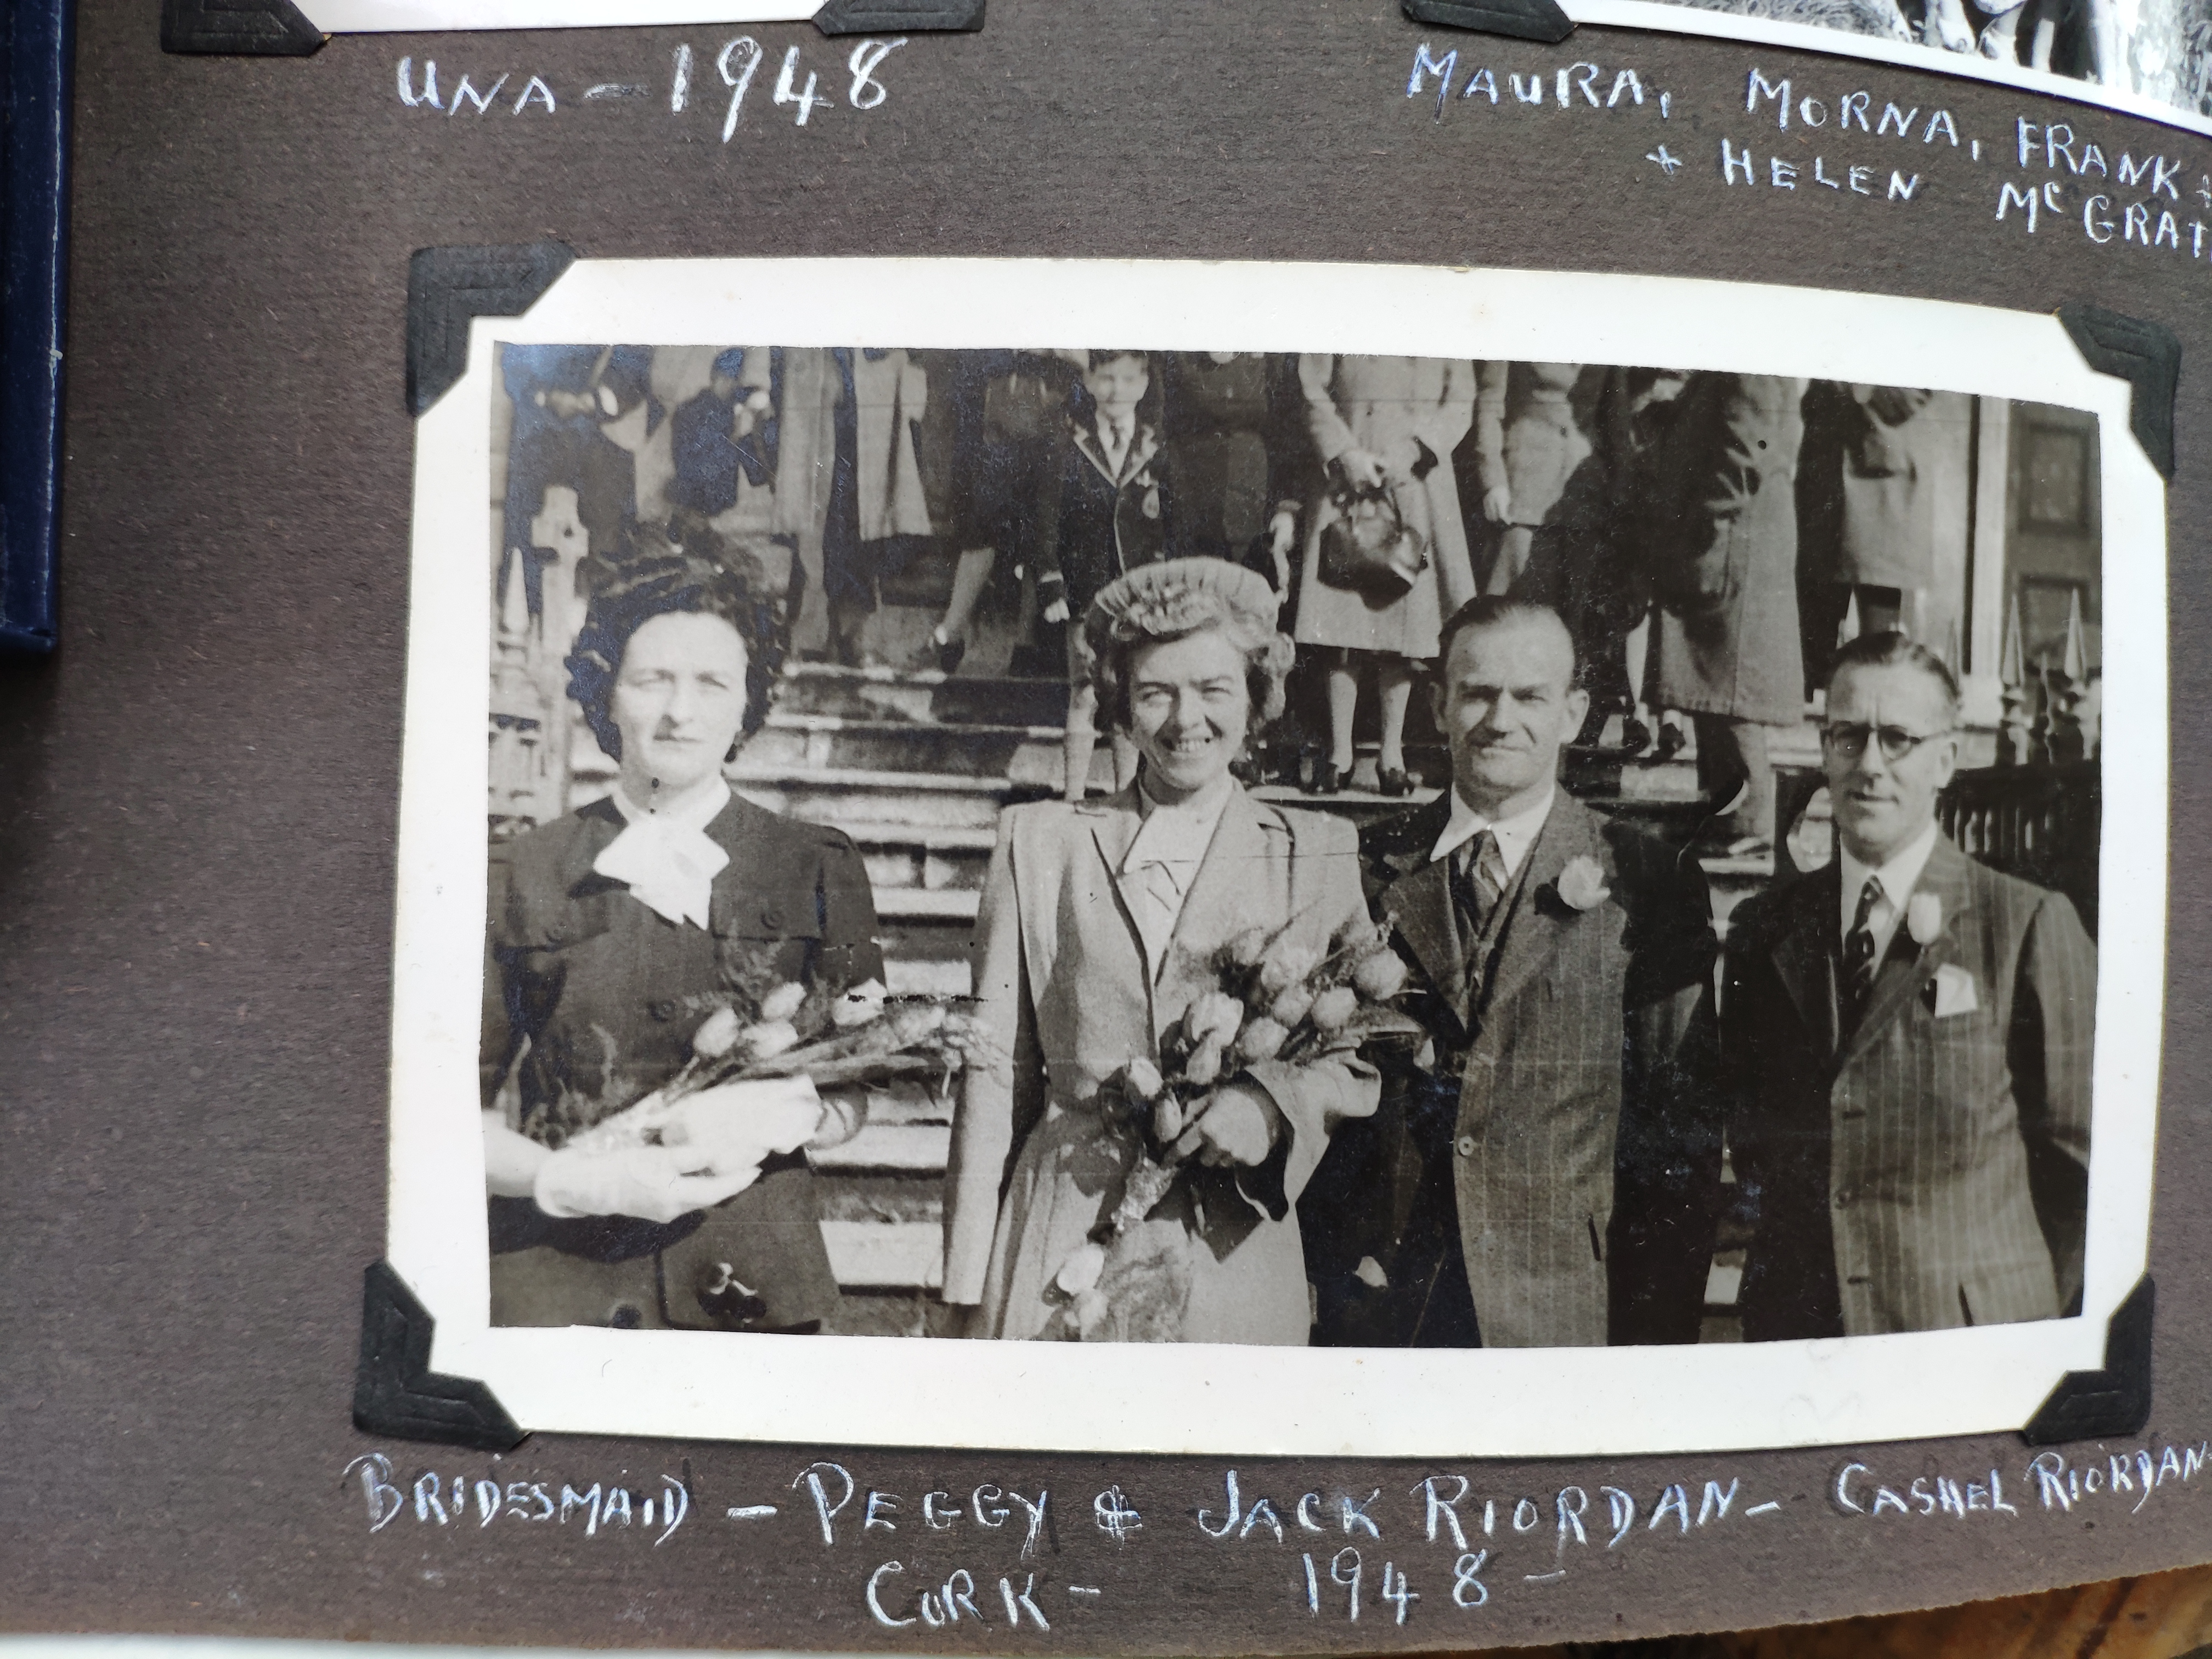 UNA – 1948
MAURA, MORNA, FRANK +
+ HELEN MC GRAT
BRIDESMAID – PEGGY & JACK RIORDAN – CASHEL RIORDAN-
CORK – 1948 –